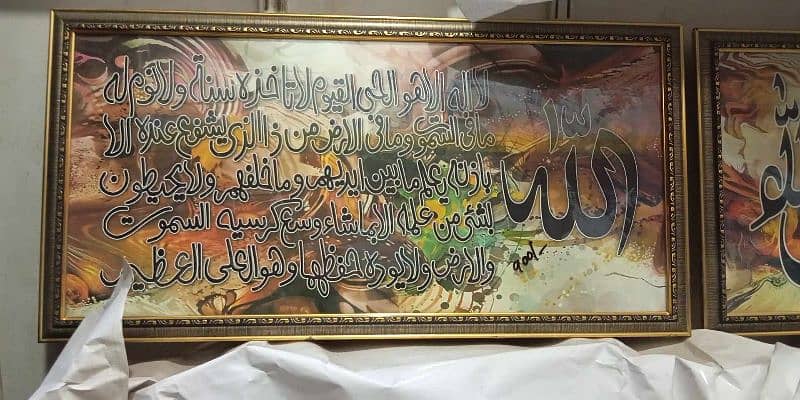 الله
لا اله الا هو الحي القيوم لا تاخذه سنة ولا نوم له
ما في السموت وما في الارض من ذا الذي يشفع عنده الا
باذنه يعلم ما بين ايديهم وما خلفهم ولا يحيطون
بشئ من علمه الا بما شاء وسع كرسيه السموت
والارض ولا يوده حفظهما وهو العلى العظيم
900/-